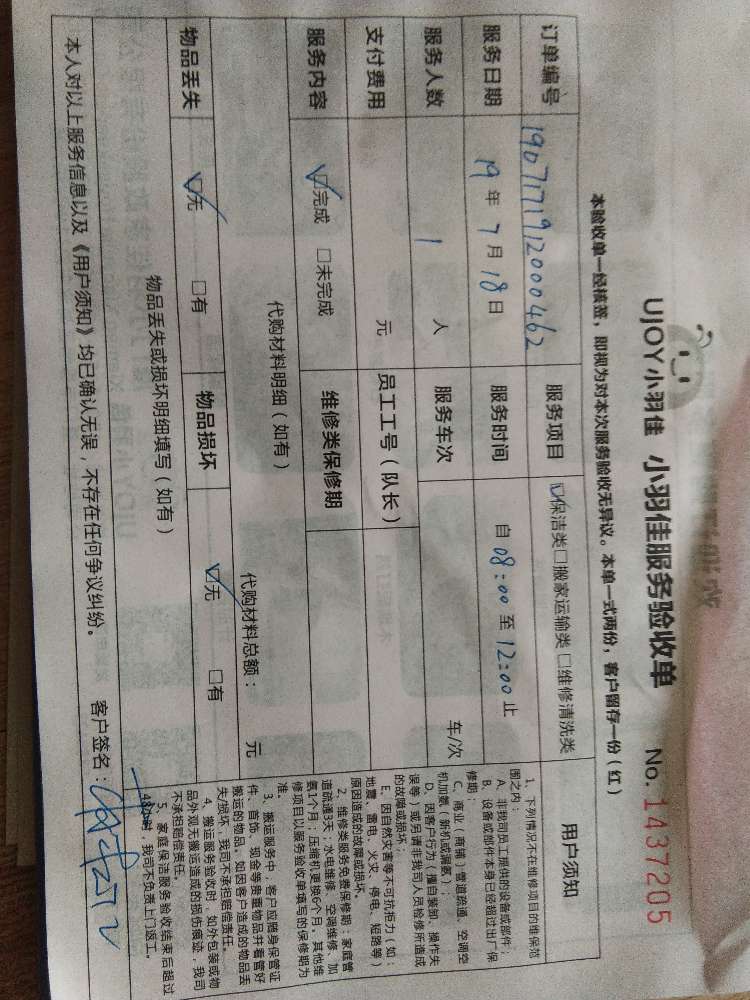 UJOY小羽佳 小羽佳服务验收单 No. 1437205
本验收单一经核签，即视为对本次服务验收无异议。本单一式两份，客户留存一份（红）
订单编号 1907171912000462 服务项目 ☑保洁类□搬家运输类 □维修清洗类 用户须知
服务日期 19 年 7 月 18 日 服务时间 自 08:00 至 12:00 止
服务人数 1 人 服务车次 车/次
支付费用 元 员工工号（队长）
服务内容 ☑完成 □未完成 维修类保修期
代购材料明细（如有）
代购材料总额： 元
物品丢失 ☑无 □有 物品损坏 ☑无 □有
物品丢失或损坏明细填写（如有）
本人对以上服务信息以及《用户须知》均已确认无误，不存在任何争议纠纷。 客户签名：
1、下列情况不在维修项目的维保范
围之内：
A、非我司员工提供的设备或部件；
B、设备或部件本身已经超过出厂保
修期；
C、商业（商铺）管道疏通、空调空
机加氨（新况或漏氨）；
D、因客户行为（擅自装卸、操作失
误等）或另请非我司人员检修所造成
的故障或损坏；
E、因自然灾害等不可抗拒力（如：
地震、雷电、火灾、停电、短路等）
原因造成的故障或损坏。
2、维修类服务免费保修期：家庭管
道疏通3天；水电维修、空调维修、加
氨1个月；压缩机更换6个月。其他维
修项目以服务验收单填写的保修期为
准。
3、搬运服务中，客户应随身保管证
件、首饰、现金等贵重物品并看管好
搬运的物品。如因客户造成的物品丢
失/损坏，我司不承担赔偿责任。
4、搬运服务验收时，如外包装或物
品外观无搬运造成的损伤痕迹，我司
不承担赔偿责任。
5、家庭保洁服务验收结束后超过
48小时，我司不负责上门返工。